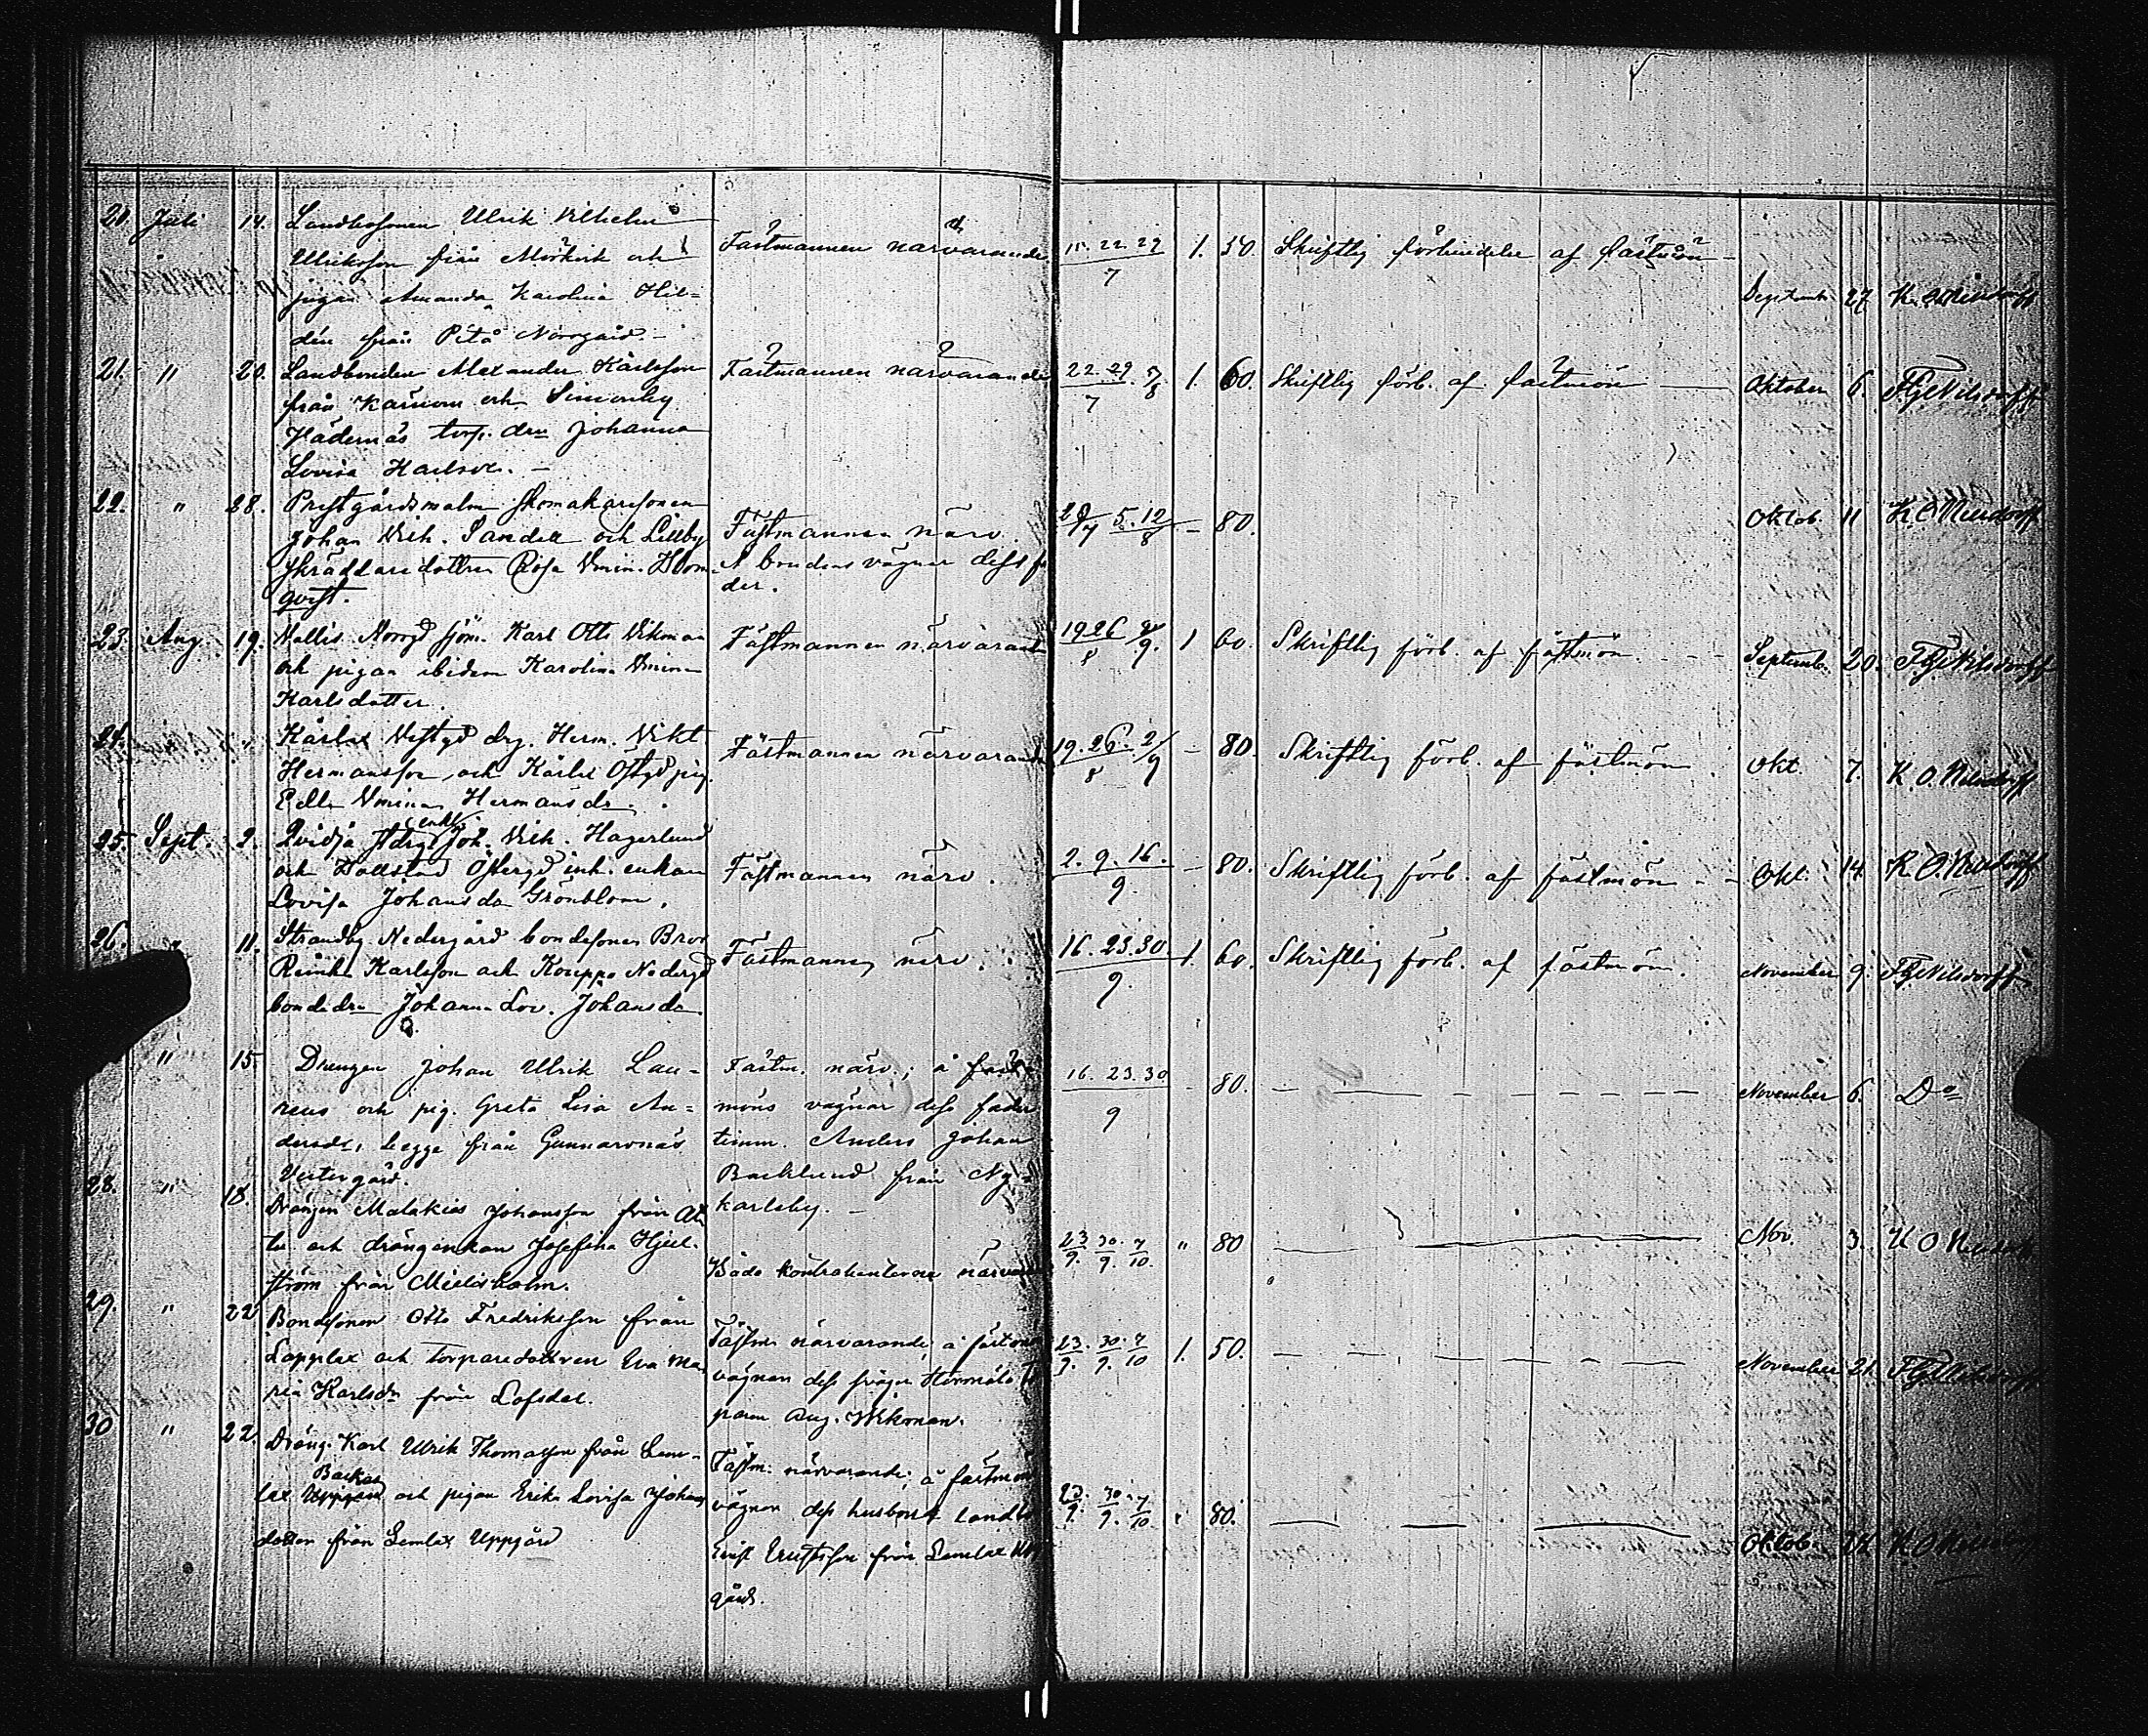 20. Juli 14. Landbosonen Ulrik Vilhelm
Ulriksson från Mörkirk och
pigan Amanda Karolina Hel=
dén från Pitå Norrgård. –
Fästmannen närvarande
15. 22. 29
7
1. 50. Skriftlig förbindelse af fästmön –
Septemb. 27.
21. " 20. Landbonden Alexander Karlsson
från och Simonby
torp. drn Johanna
Lovisa Karlsdr. –
Fästmannen närvarande
22. 29 . 5/8
7
1. 60. Skriftlig förb. af fästmön
Oktober 6. F.G. Nilsdorff
22. " 28. Prestgårdsmalm skomakaresonen
Johan Vilh. Sandell och Lillby
skräddaredottren Rosa Vmin. Blom-
qvist.
Fästmannen närv.
Å brudens vägnar dess fa
der.
29/7 5. 12/8 – 80.
Oktob. 11 K O Nilsdorff
23. Aug. 19. Mallis Norrgd sjöm. Karl Otto Vikman
och pigan ibidem Karolina Vmina
Karlsdotter.
Fästmannen närvarande
19 26 2/9.
8
1 60. Skriftlig förb. af fästmön. – – –
Septemb. 20. F.G. Nilsdorff
24. " " Kårlax Vestgd drg. Herm. Vikt.
Hermansson, och Kårlax Östgd pig.
Edla Vmina Hermansdr.
Fästmannen närvarande
19. 26. 2/9
8
– 80. Skriftlig förb. af fästmön
Okt. 7. K. O. Nilsdorff
25. Sept. 2. Qvidja stdrg. enkl. Joh. Vilh. Hagerlund
och Östergd inh. enkan
Lovisa Johansdr Grönblom.
Fästmannen närv.
2. 9. 16.
9.
– 80. Skriftlig förb. af fästmön – –
Okt. 14. K. O. Nilsdorff
26. " 11. Strandby Nedergård bondesonen Bror
Reinh. Karlsson och Kouppo Nedergd
bondedrn Johanna Lov. Johansdr.
Fästmannen närv.
16. 23. 30.
9.
1. 60. Skriftlig förb. af fästmön.
November 9. F.G. Nilsdorff
" 15. Drengen Johan Ulrik Lau=
reus och pig. Greta Lisa An=
dersdr, begge från Gunnarsnäs
Vestergård.
Fästm. närv.; å fäst
möns vägnar dess fader
timm. Anders Johan
Backlund från Ny=
karleby. –
16. 23. 30
9
– 80. – – – – – – –
November 6. Do
28. " 18. Drängen Malakias Johansson från At
tu och drängenkan Josefina Hjel-
ström från Mielisholm.
Båda kontrahenterna närvar
23/9. 30./9. 7/10. " 80
Nov. 3. K O Nilsdorff
29. " 22 Bondsonen Otto Fredriksson från
Lopplax och Torparedottren Eva Ma
ria Karlsdr från Lofsdal.
Fästm. närvarande; å fästmö
vägnar dess svåger to
paren Aug. Wikman.
23./9. 30./9. 7/10 1. 50. – – – – – –
November 21. F.G. Nilsdorff
30 " 22. Dräng. Karl Ulrik Thomasson från Lem-
lax Backas Uppgård och pigan Erika Lovisa Johans
dotter från Lemlax Uppgård
Fästm. närvarande; å fästmön
vägnar dess husbond landbo
Ernst Ernstsson från Lemlax Upp
gård.
23/9. 30/9. 7/10. " 80. – – –
Oktob. 24. K O Nilsdorff